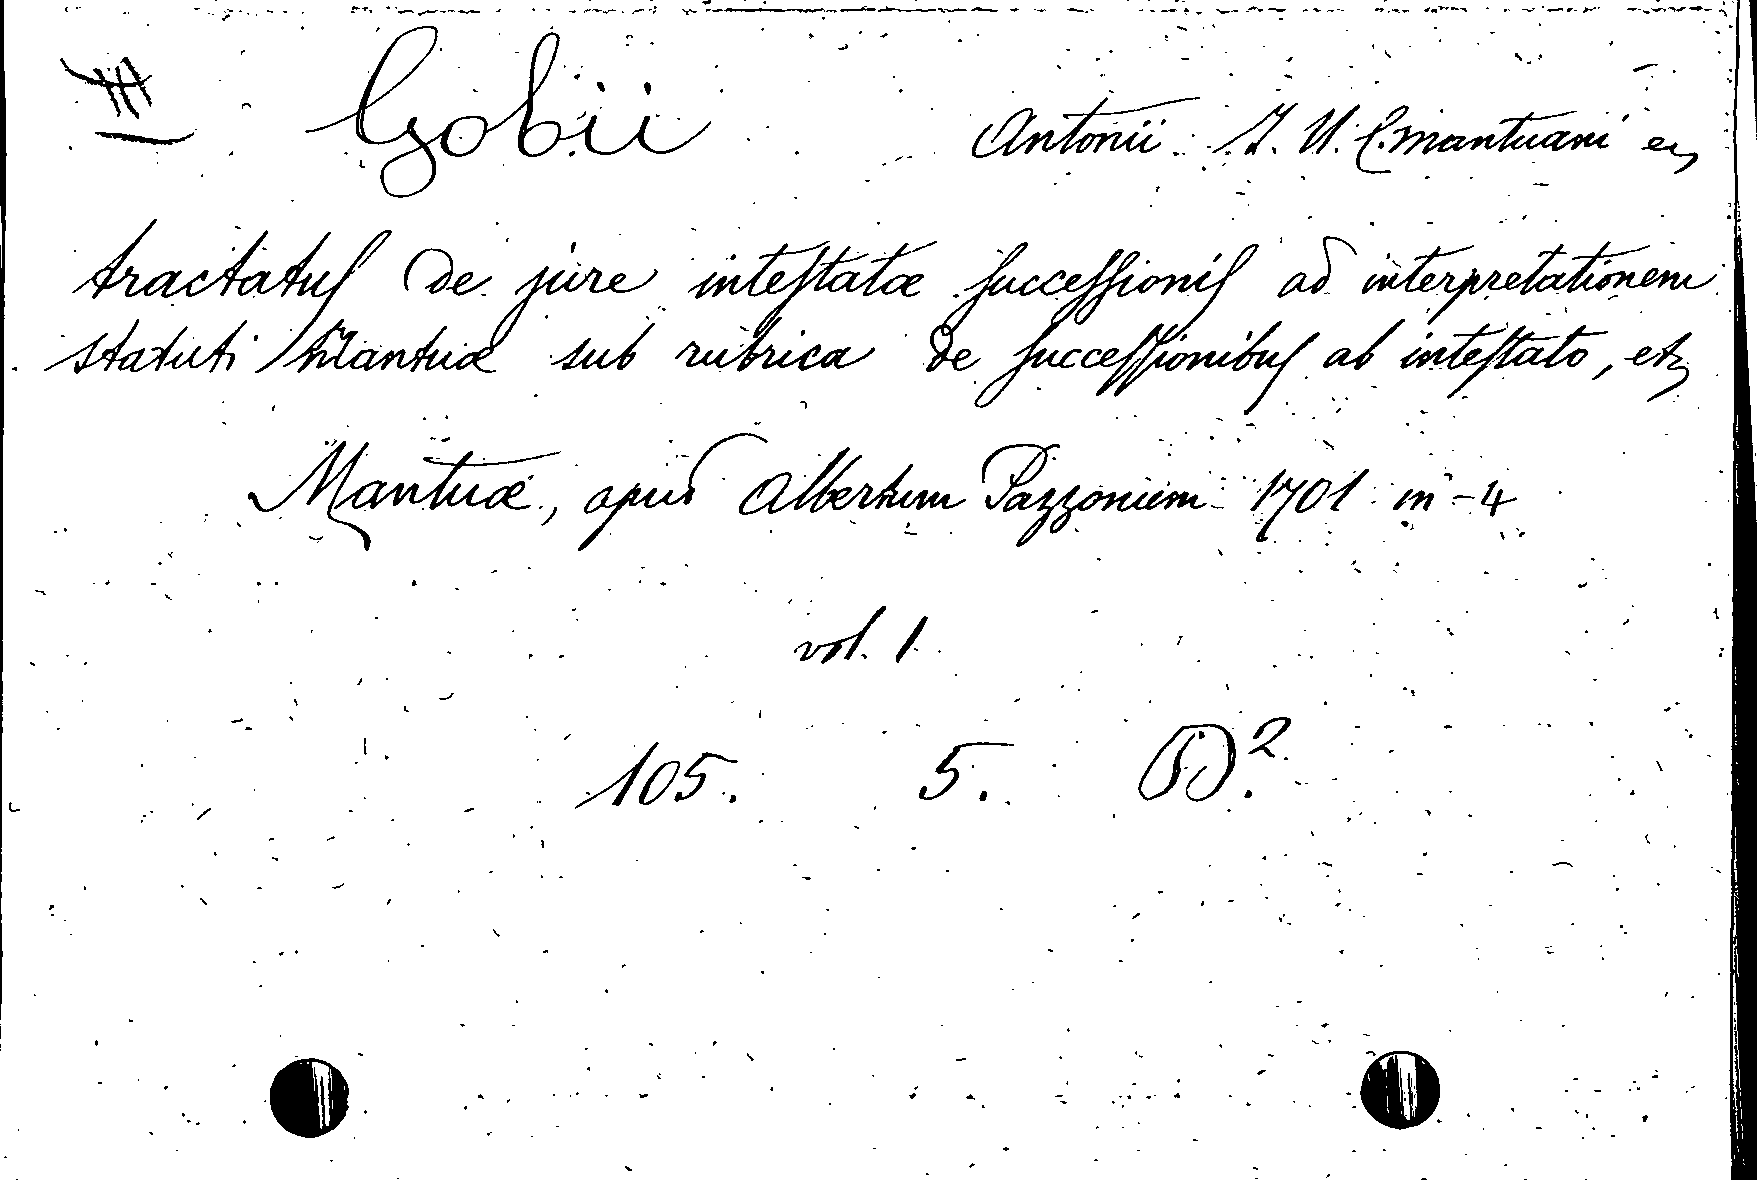 Gobii Antonii J. U. C. Mantuani
tractatuſ de jure inteſtatæ ſucceſſioniſ ad interpretationem
statuti Mantuæ sub rubrica de ſucceſſionibuſ ab inteſtato, etz
Mantuæ, apud Albertum Pazzonium 1701 in-4
vol. 1.
105. 5. D².